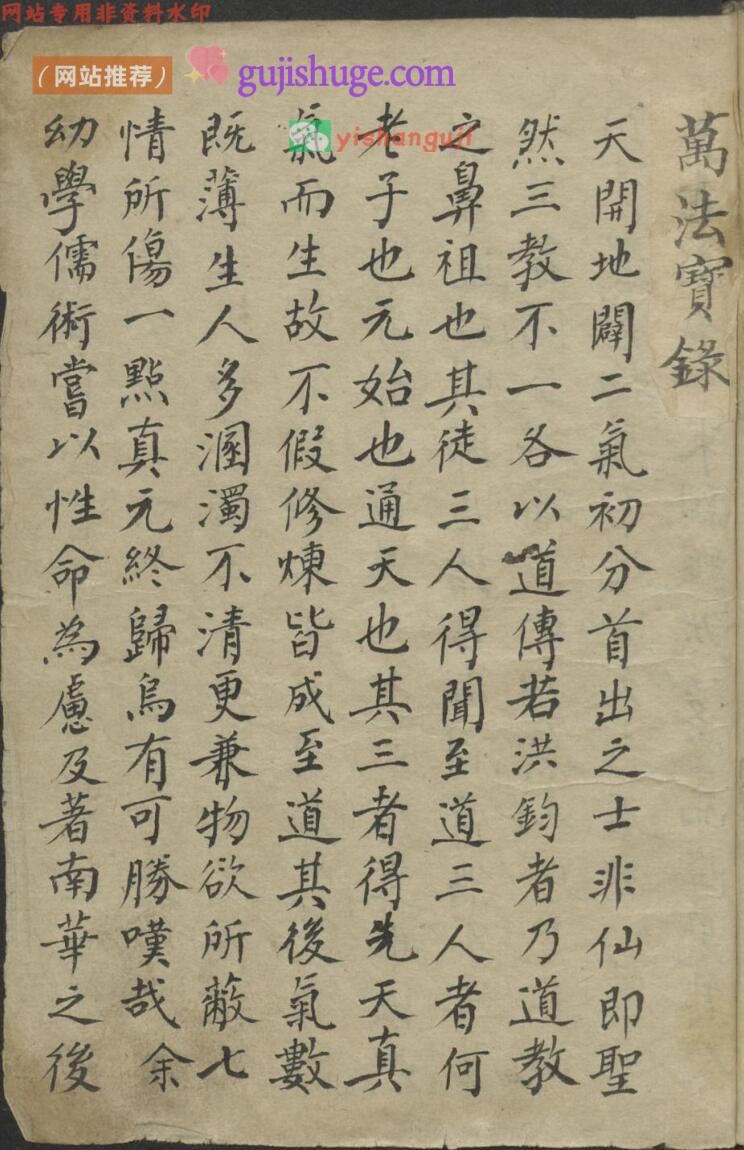 网站专用非资料水印
（网站推荐）
gujishuge.com
yishanguji
萬法寶錄
天開地闢二氣初分首出之士非仙即聖
然三教不一各以道傳若洪鈞者乃道教
之鼻祖也其徒三人得聞至道三人者何
老子也元始也通天也其三者得先天真
氣而生故不假修煉皆成至道其後氣數
既薄生人多溷濁不清更兼物欲所蔽七
情所傷一點真元終歸烏有可勝嘆哉余
幼學儒術嘗以性命為慮及著南華之後